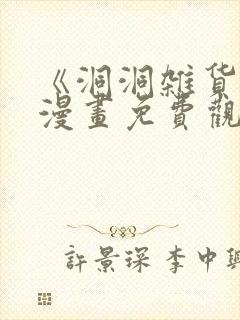 《洞洞雑货
漫畫免費觀
許景琛 李中興